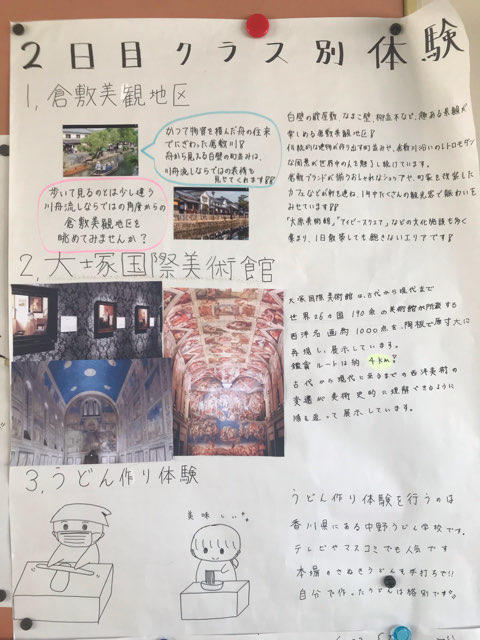 2日目クラス別体験
1, 倉敷美観地区
かつて物資を積んだ舟の往来
でにぎわった倉敷川!!
舟から見える白壁の町並みは、
川舟流しならではの表情も
見せてくれます!!
歩いて見るのとは少し違う
川舟流しならではの角度からの
倉敷美観地区を
眺めてみませんか?
白壁の蔵屋敷、なまこ壁、柳並木など、趣ある景観が
楽しめる倉敷美観地区!!
伝統的な建物が作り出す町並みや、倉敷川沿いのレトロモダン
な風景が世界中の人を魅了し続けています。
倉敷ブランドが揃うおしゃれなショップや、町家を改装した
カフェなどが軒を連ね、1年中たくさんの観光客で賑わいを
みせています!!
「大原美術館」「アイビースクエア」などの文化施設も多く
集まり、1日散策しても飽きないエリアです!!
2, 大塚国際美術館
大塚国際美術館は、古代から現代まで
世界26カ国190余の美術館が所蔵する
西洋名画約1000点を、陶板で原寸大に
再現し、展示しています。
鑑賞ルートは約4km!
古代から現代に至るまでの西洋美術の
変遷が美術史的に理解できるように
順を追って展示しています。
3, うどん作り体験
美味しい
うどん作り体験を行うのは
香川県にある中野うどん学校です。
テレビやマスコミでも人気です
本場のさぬきうどんを手打ちで!!
自分で作ったうどんは格別です